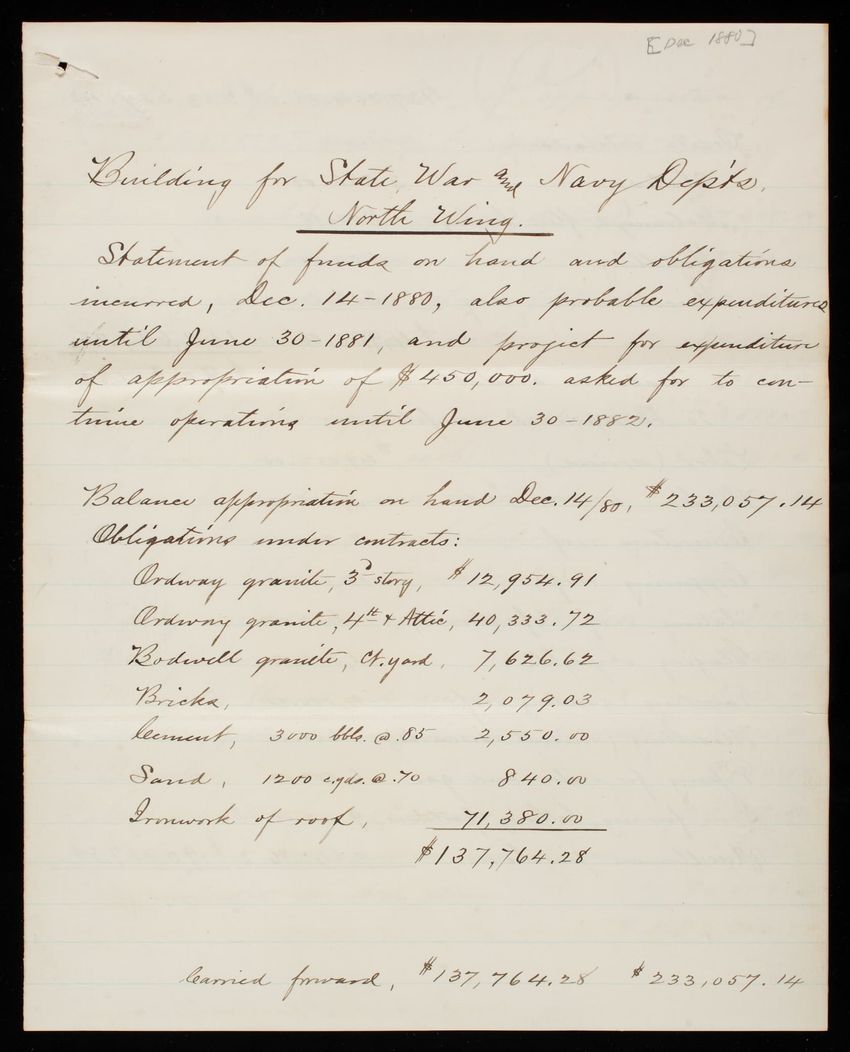 [Dec 1880]
Building for State, War and Navy Dep'ts,
North Wing.
Statement of funds on hand and obligations
incurred, Dec. 14-1880, also probable expenditures
until June 30-1881, and project for expenditure
of appropriation of $450,000. asked for to con-
tinue operations until June 30-1882.
Balance appropriation on hand Dec. 14/80, $233,057.14
Obligations under contracts:
Ordway granite, 3d story, $12,954.91
Ordway granite, 4th & Attic, 40,333.72
Bodwell granite, Ct. yard, 7,626.62
Bricks, 2,079.03
Cement, 3000 bbls. @ .85 2,550.00
Sand, 1200 c.yds. @ .70 840.00
Ironwork of roof, 71,380.00
$137,764.28
Carried forward, $137,764.28 $233,057.14